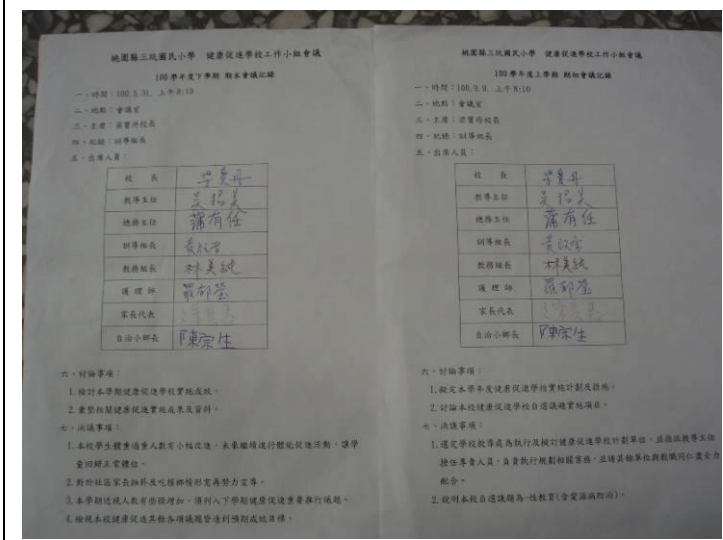 桃園縣三坑國民小學　健康促進學校工作小組會議
100 學年度下學期 期末會議記錄
一、時間：100.5.31. 上午 8:10
二、地點：會議室
三、主席：
四、紀錄：訓導組長
五、出席人員：
校　長
教導主任
總務主任 蒲有任
訓導組長
教務組長 林美純
護 理 師 羅郁瑩
家長代表
自治小鄉長 陳宗生
六、討論事項：
1. 檢討本學期健康促進學校實施成效。
2. 彙整相關健康促進實施成果及資料。
七、決議事項：
1. 本校學生體重過重人數有小幅改進，未來繼續進行體能促進活動，讓學
童回歸正常體位。
2. 對於社區家長抽菸及吃檳榔情形需再努力宣導。
3. 本學期近視人數有些微增加，須列入下學期健康促進重要推行議題。
4. 檢視本校健康促進其餘各項議題皆達到預期成效目標。
桃園縣三坑國民小學　健康促進學校工作小組會議
100 學年度上學期 期初會議記錄
一、時間：100.9.9. 上午 8:10
二、地點：會議室
三、主席：
四、紀錄：訓導組長
五、出席人員：
校　長
教導主任
總務主任 蒲有任
訓導組長
教務組長 林美純
護 理 師 羅郁瑩
家長代表
自治小鄉長 陳宗生
六、討論事項：
1. 擬定本學年度健康促進學校實施計劃及措施。
2. 討論本校健康促進學校自選議題實施項目。
七、決議事項：
1. 選定學校教導處為執行及擬訂健康促進學校計劃單位，並指派教導主任
擔任專責人員，負責執行規劃相關業務，並請其餘單位與教職同仁盡全力
配合。
2. 說明本校自選議題為-性教育(含愛滋病防治)。